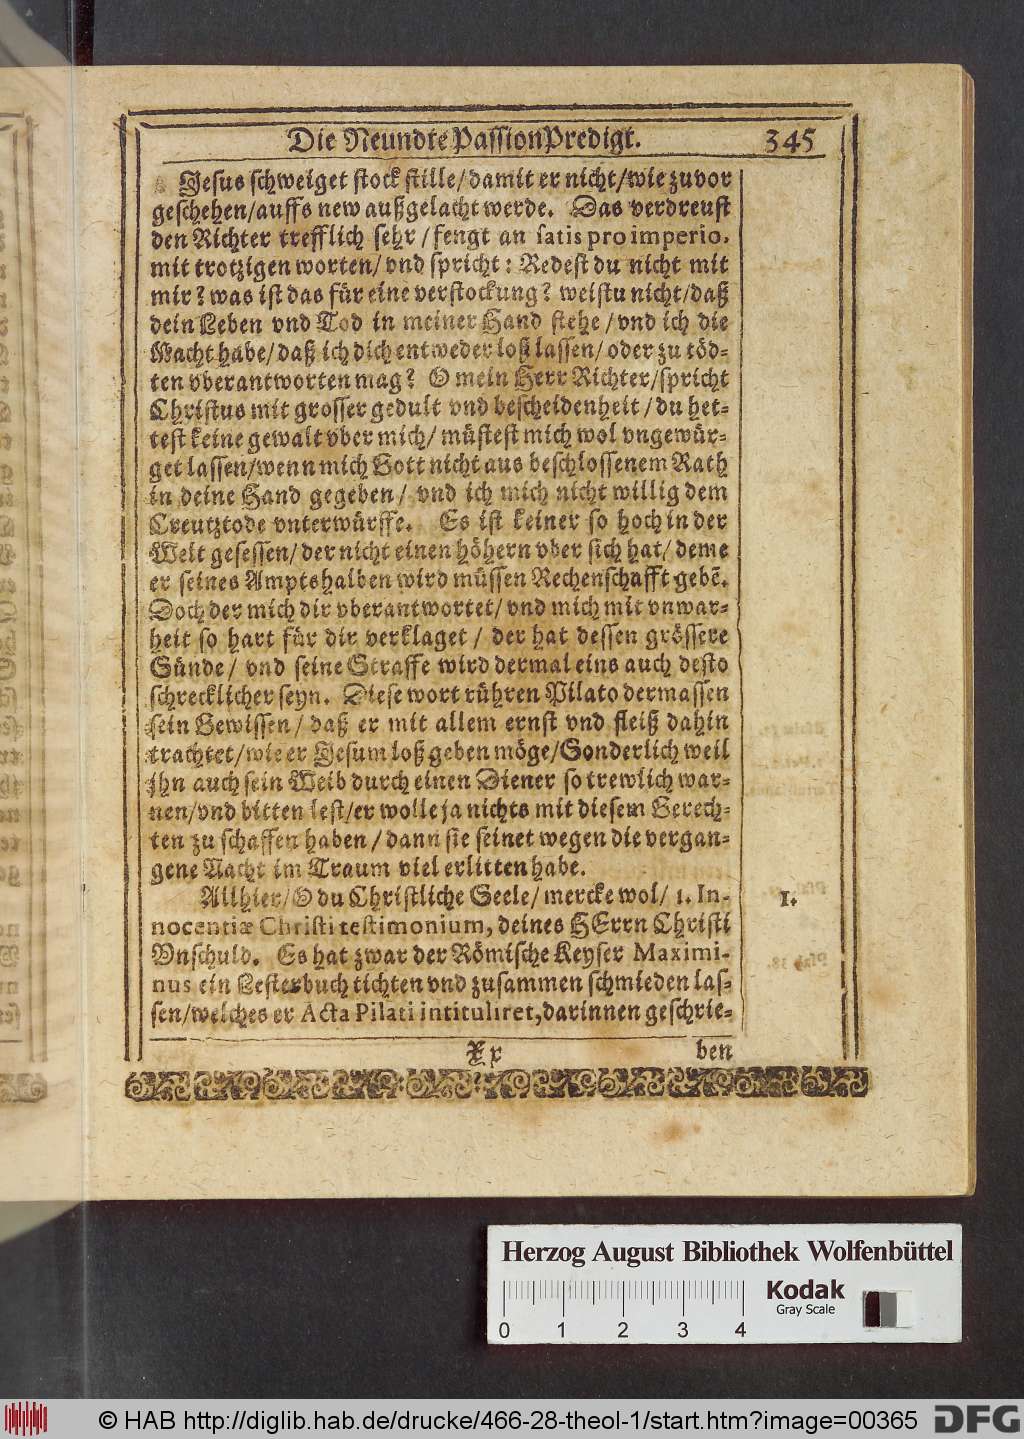 Die Neundte PassionPredigt. 345
Jesus schweiget stock stille/damit er nicht/wie zuvor
geschehen/auffs new außgelacht werde. Das verdreust
den Richter trefflich sehr/fengt an satis pro imperio.
mit trotzigen worten/vnd spricht: Redest du nicht mit
mir? was ist das für eine verstockung? weistu nicht/daß
dein Leben vnd Tod in meiner Hand stehe/vnd ich die
Macht habe/daß ich dich entweder loß lassen/oder zu töd-
ten vberantworten mag? O mein Herr Richter/spricht
Christus mit grosser gedult vnd bescheidenheit/du het-
test keine gewalt vber mich/müstest mich wol vngewür-
get lassen/wenn mich Gott nicht aus beschlossenem Rath
in deine Hand gegeben/vnd ich mich nicht willig dem
Creutztode vnterwürffe. Es ist keiner so hoch in der
Welt gesessen/der nicht einen höhern vber sich hat/deme
er seines Ampts halben wird müssen Rechenschafft gebē.
Doch der mich dir vberantwortet/vnd mich mit vnwar-
heit so hart für dir verklaget/der hat dessen grössere
Sünde/vnd seine Straffe wird dermal eins auch desto
schrecklicher seyn. Diese wort rühren Pilato dermassen
sein Gewissen/daß er mit allem ernst vnd fleiß dahin
trachtet/wie er Jesum loß geben möge/Sonderlich weil
jhn auch sein Weib durch einen Diener so trewlich war-
nen/vnd bitten lest/er wolle ja nichts mit diesem Gerech-
ten zu schaffen haben/dann sie seinet wegen die vergan-
gene Nacht im Traum viel erlitten habe.
Allhier/O du Christliche Seele/mercke wol/1. In- 1.
nocentiæ Christi testimonium, deines HErrn Christi
Vnschuld. Es hat zwar der Römische Keyser Maximi-
nus ein Lesterbuch tichten vnd zusammen schmieden las-
sen/welches er Acta Pilati intituliret, darinnen geschrie-
Xx ben
Herzog August Bibliothek Wolfenbüttel
Kodak
Gray Scale
0 1 2 3 4
© HAB http://diglib.hab.de/drucke/466-28-theol-1/start.htm?image=00365
DFG